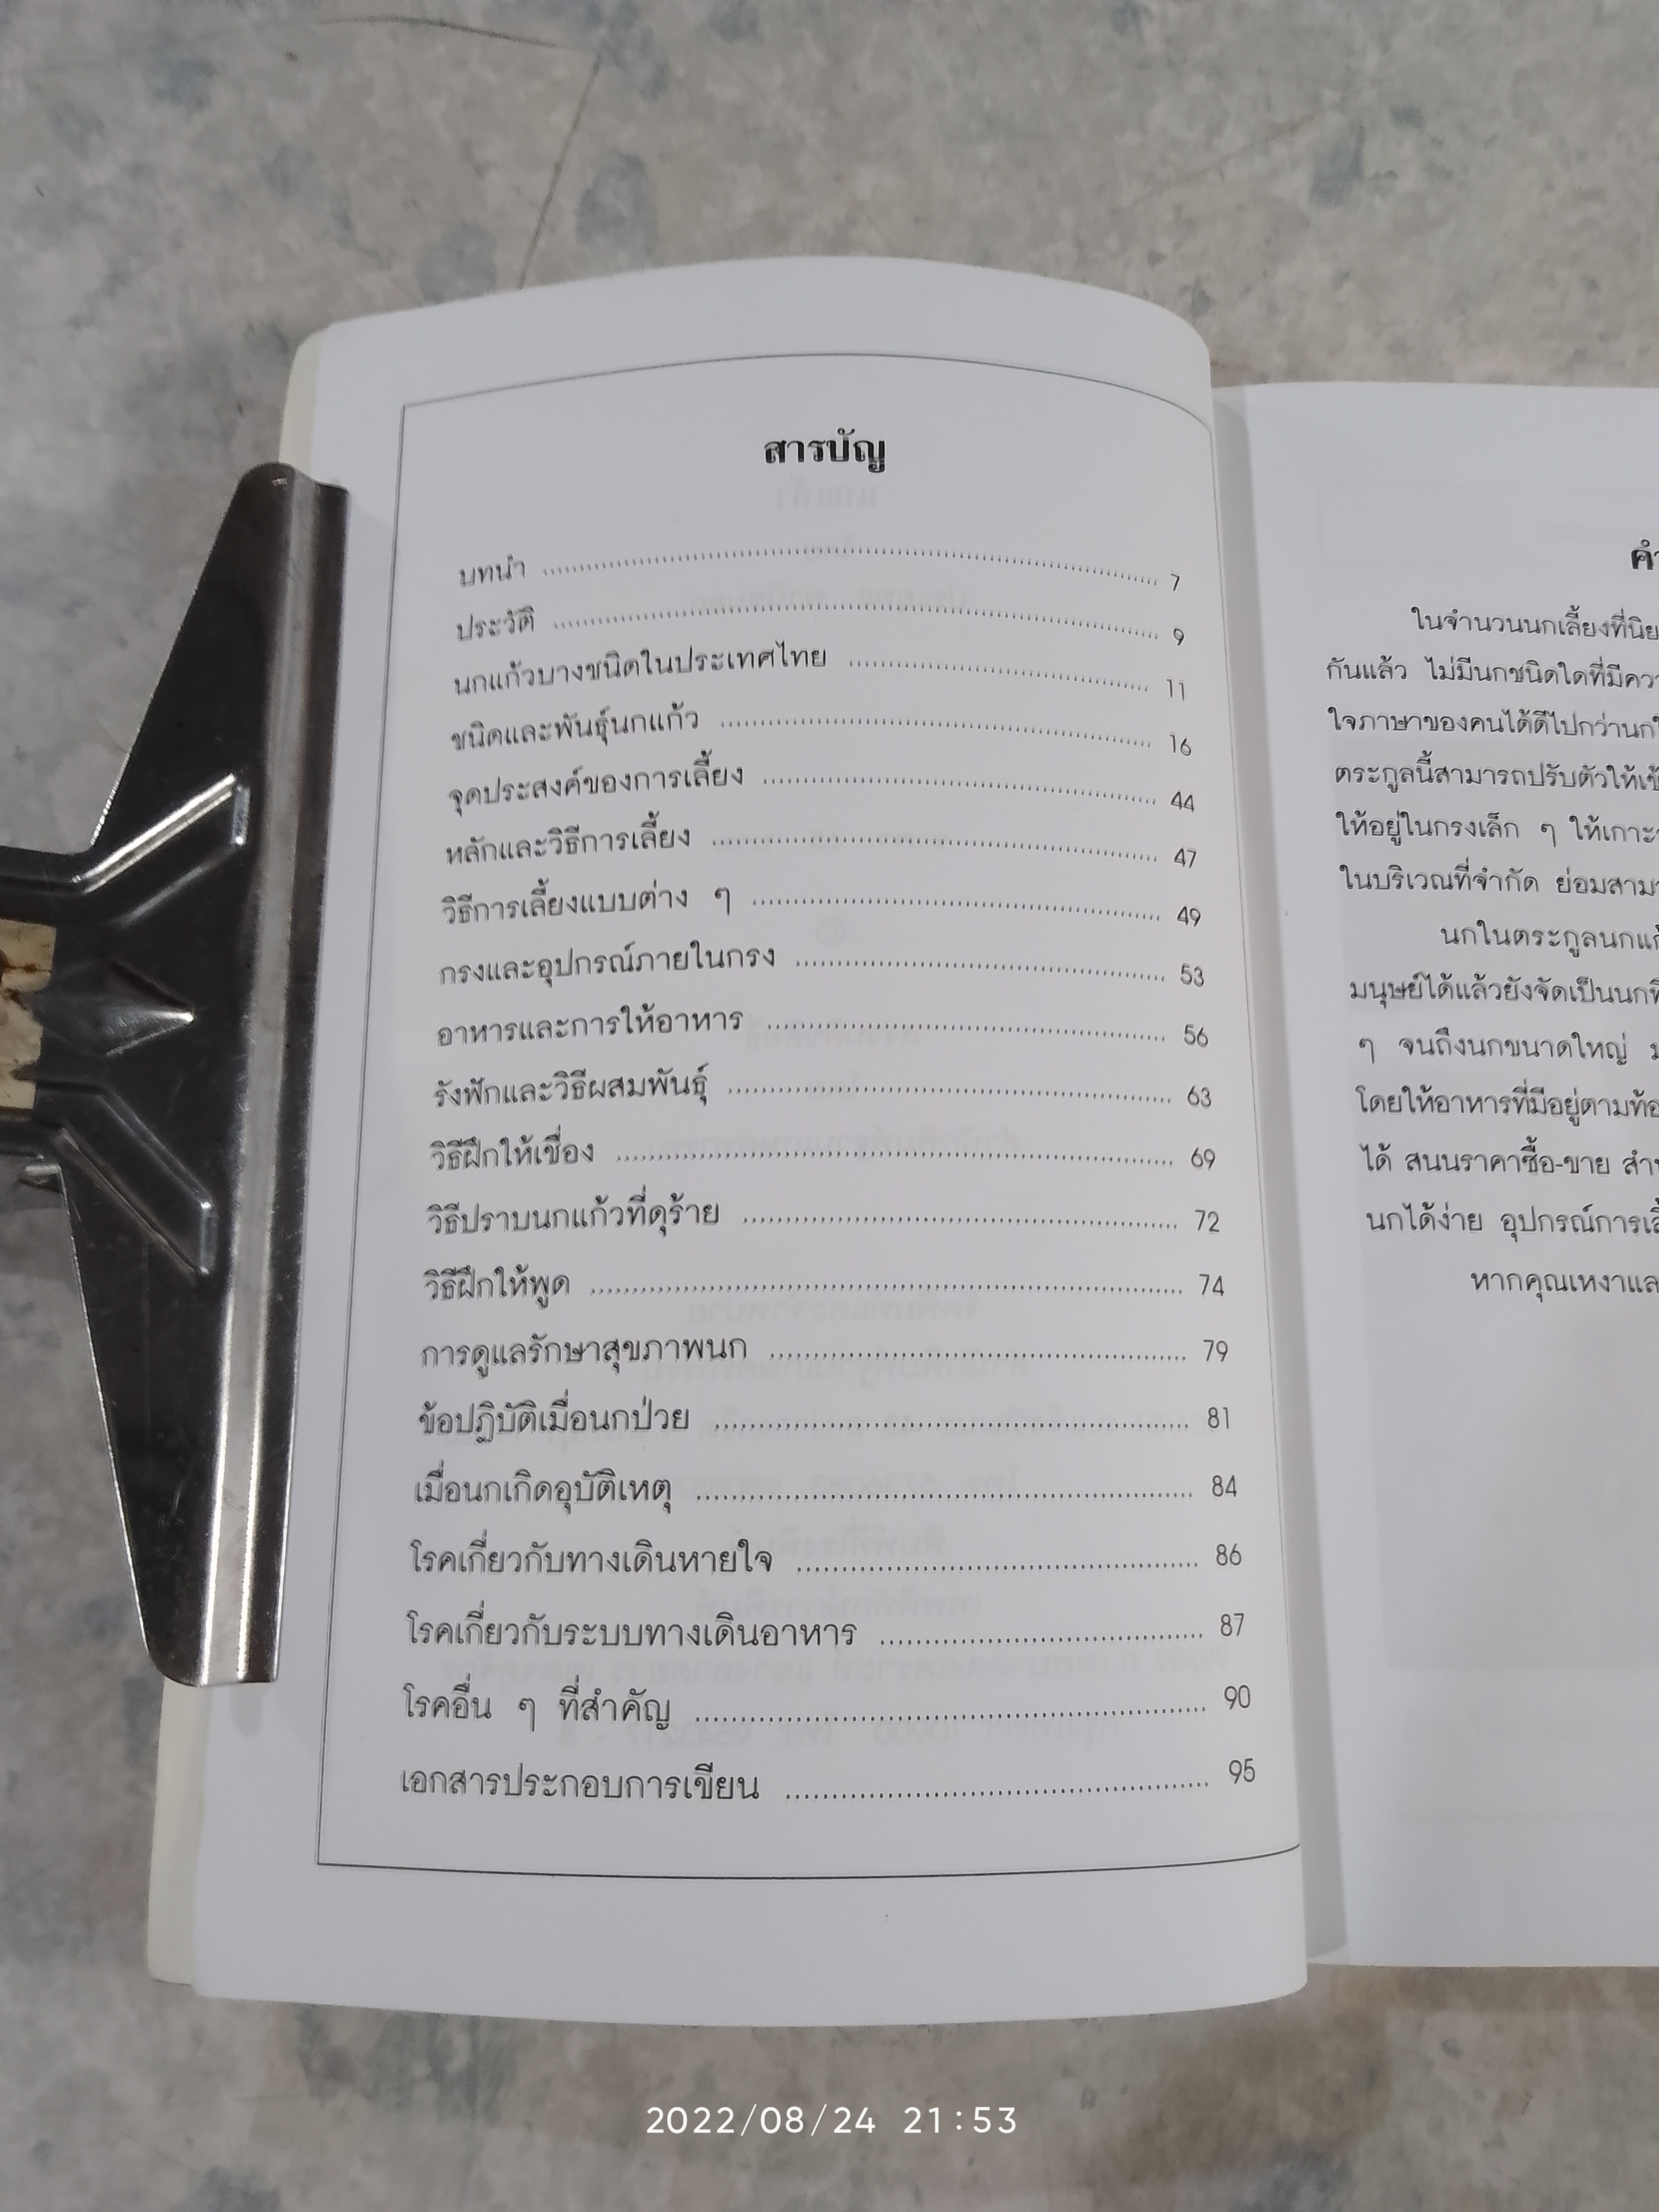 สารบัญ
บทนำ 7
ประวัติ 9
นกแก้วบางชนิดในประเทศไทย 11
ชนิดและพันธุ์นกแก้ว 16
จุดประสงค์ของการเลี้ยง 44
หลักและวิธีการเลี้ยง 47
วิธีการเลี้ยงแบบต่าง ๆ 49
กรงและอุปกรณ์ภายในกรง 53
อาหารและการให้อาหาร 56
รังฟักและวิธีผสมพันธุ์ 63
วิธีฝึกให้เชื่อง 69
วิธีปราบนกแก้วที่ดุร้าย 72
วิธีฝึกให้พูด 74
การดูแลรักษาสุขภาพนก 79
ข้อปฏิบัติเมื่อนกป่วย 81
เมื่อนกเกิดอุบัติเหตุ 84
โรคเกี่ยวกับทางเดินหายใจ 86
โรคเกี่ยวกับระบบทางเดินอาหาร 87
โรคอื่น ๆ ที่สำคัญ 90
เอกสารประกอบการเขียน 95
ในจำนวนนกเลี้ยงที่
กันแล้ว ไม่มีนกชนิดใดที่มี
ใจภาษาของคนได้ดีไปกว่านก
ตระกูลนี้สามารถปรับตัวให้
ให้อยู่ในกรงเล็ก ๆ ให้เกาะ
ในบริเวณที่จำกัด ย่อม
นกในตระกูล
มนุษย์ได้แล้วยังจัดเป็นนก
ๆ จนถึงนกขนาดใหญ่
โดยให้อาหารที่มีอยู่ตาม
ได้ สนนราคาซื้อ-ขาย
นกได้ง่าย อุปกรณ์การ
หากคุณเหงา
2022/08/24 21:53